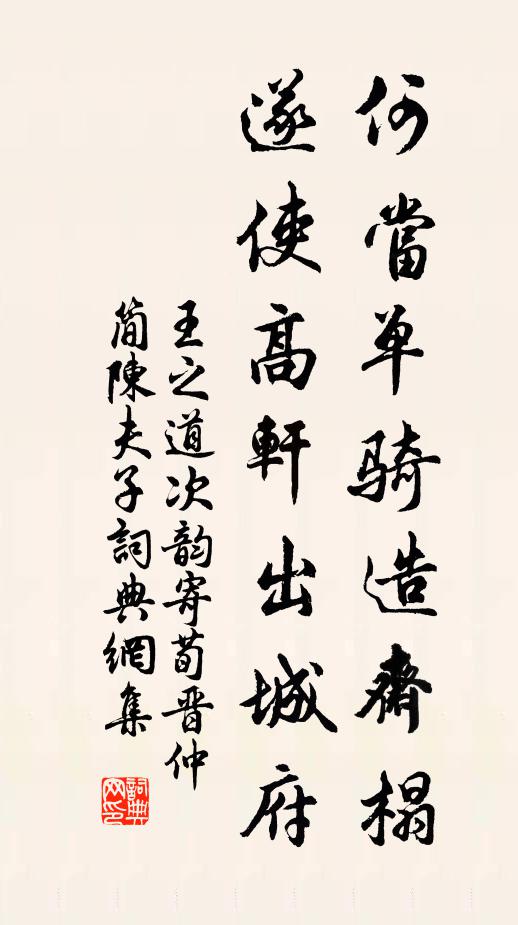 何當單騎造齋榻
遂使高軒出城府
王之道次韵寄荀晋仲
簡陳夫子詞典網集
詞典网印